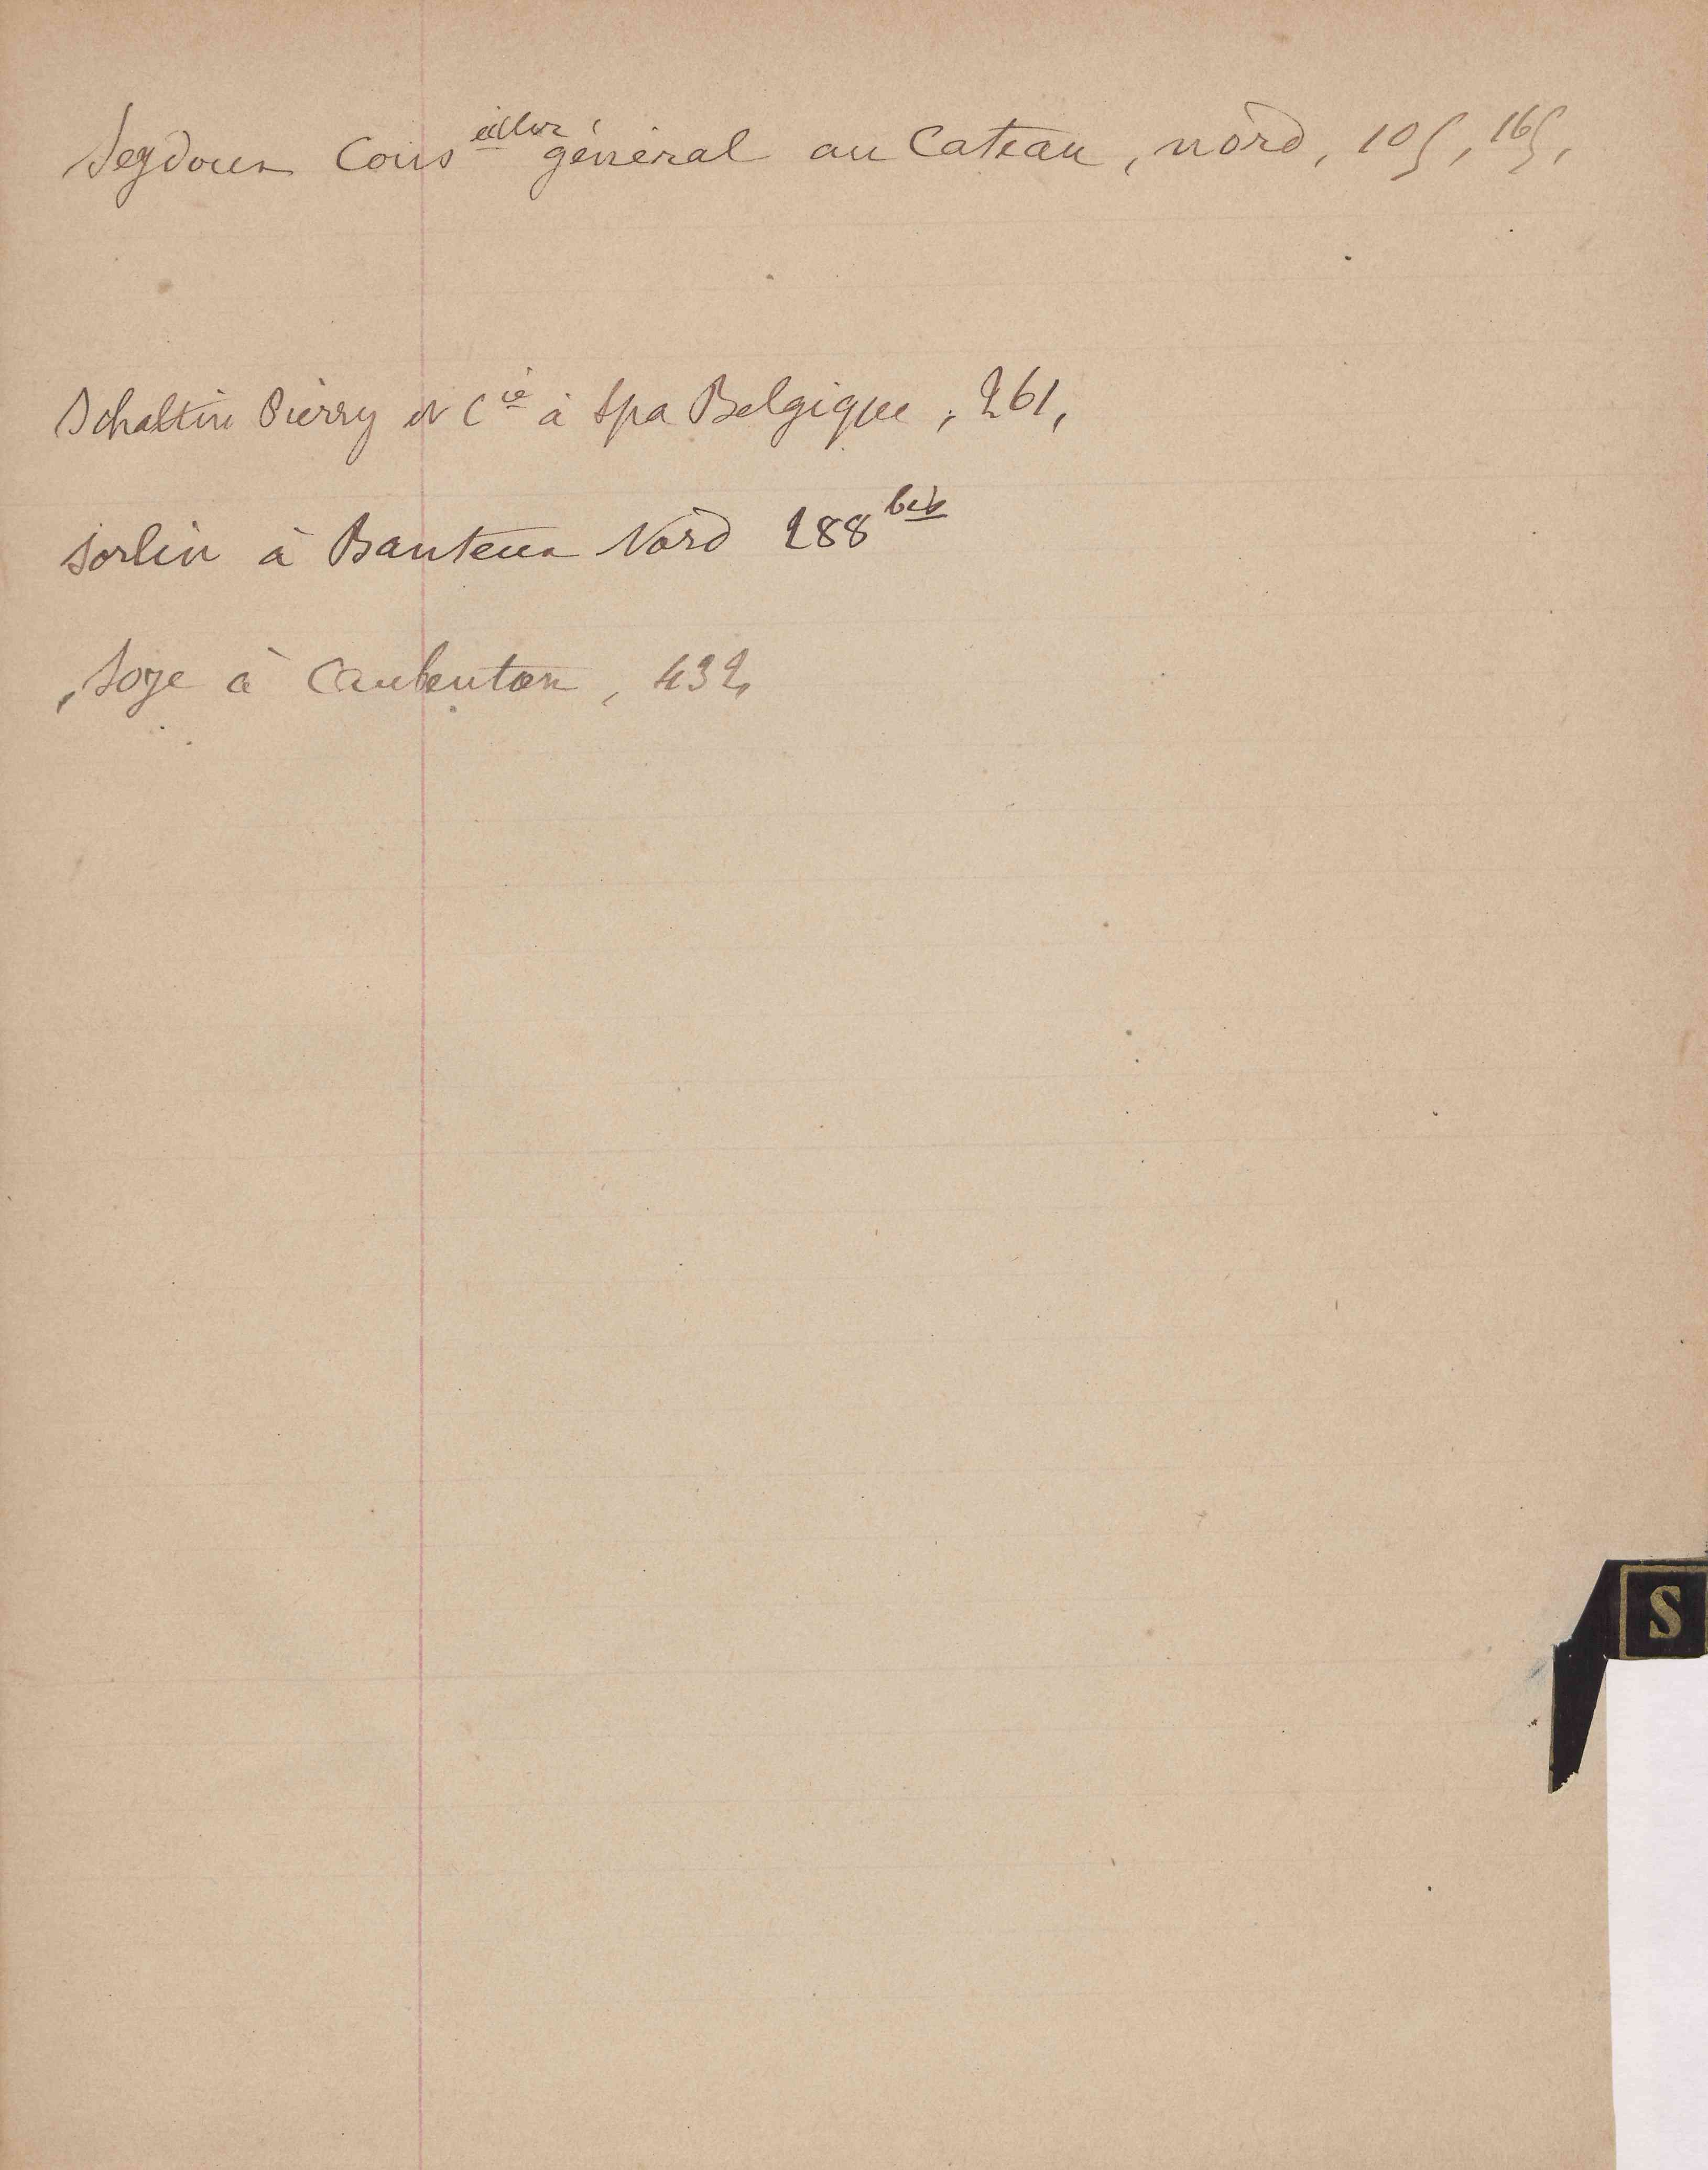 Seydoux Conseiller général au Cateau, nord, 105, 165,
Schaltin Pierry et Cie à Spa Belgique, 261,
Sorlin à Banteux Nord 288 bis
Soze à Caubenton, 432,
S